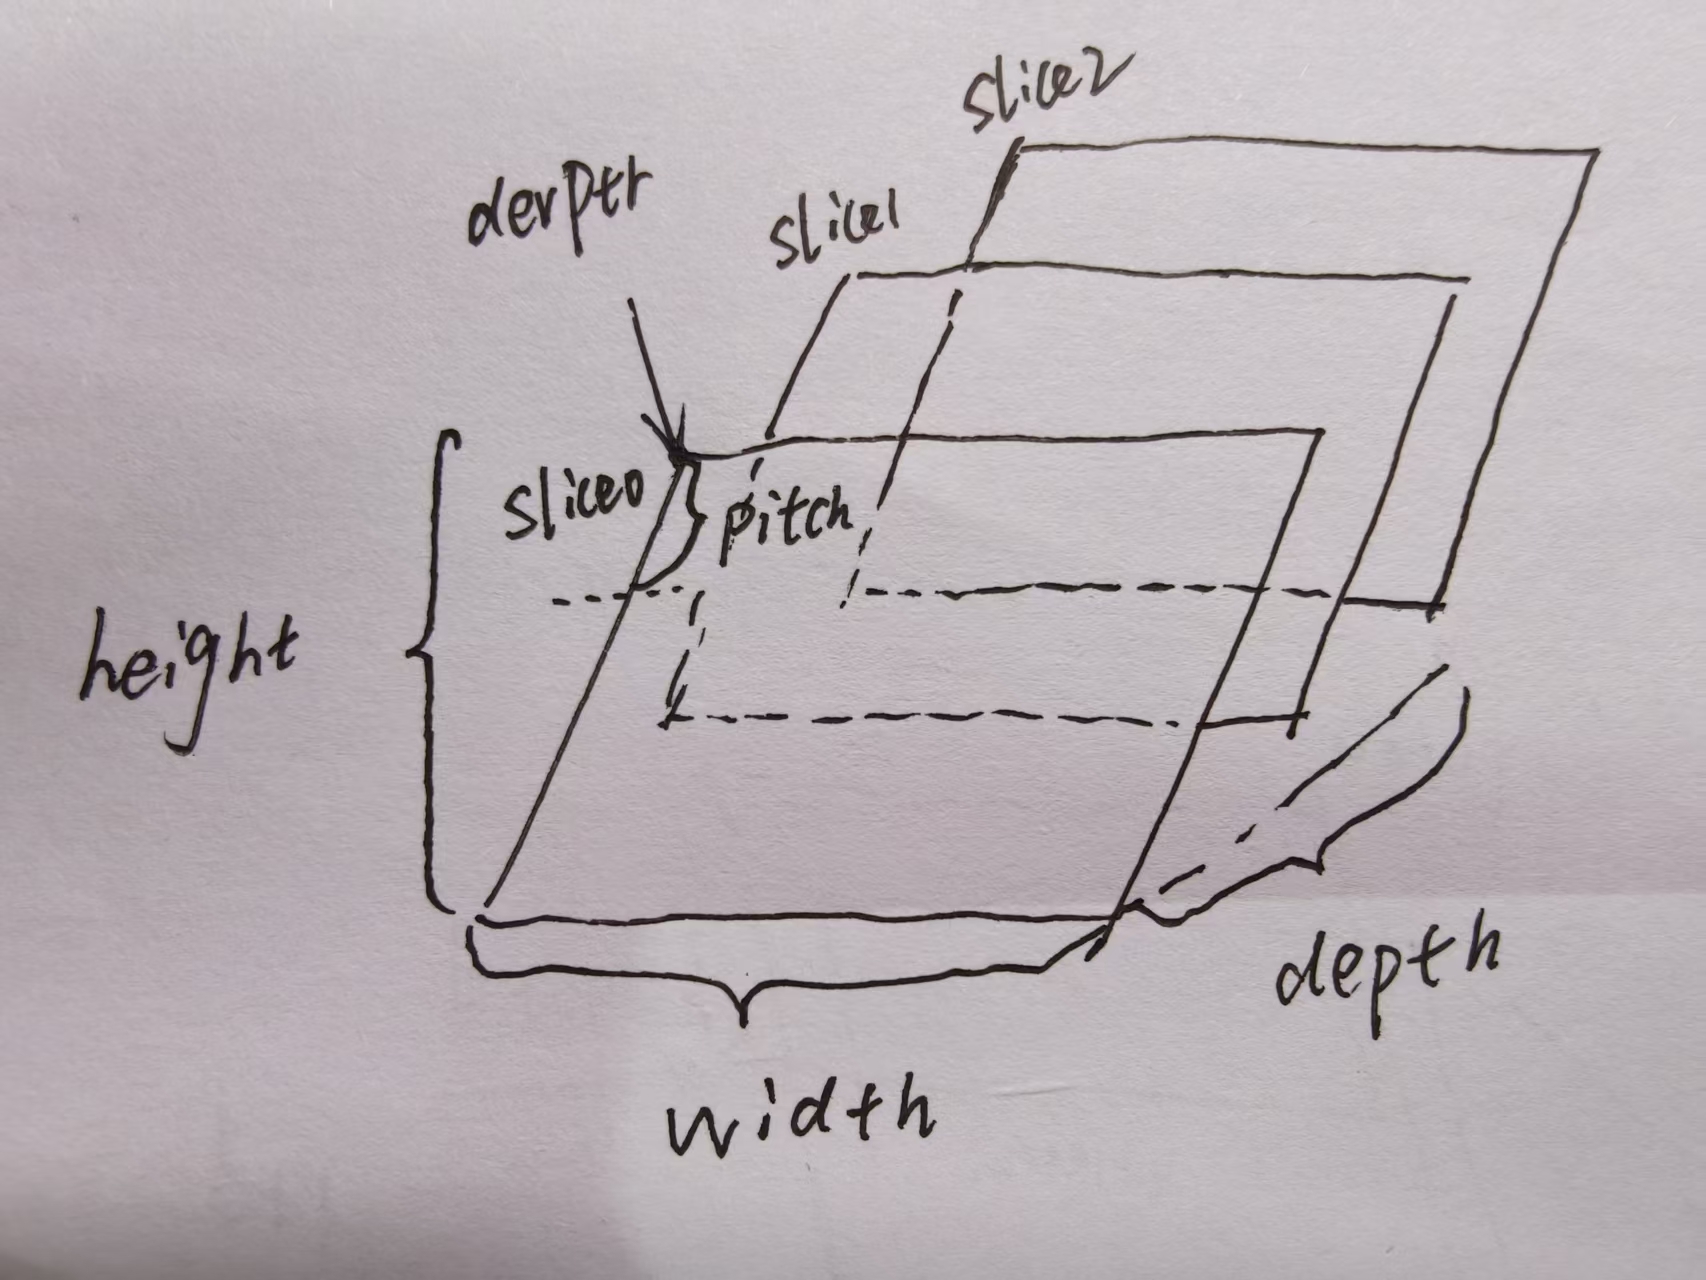 slice2
devPtr
slice1
slice0
pitch
height
depth
width